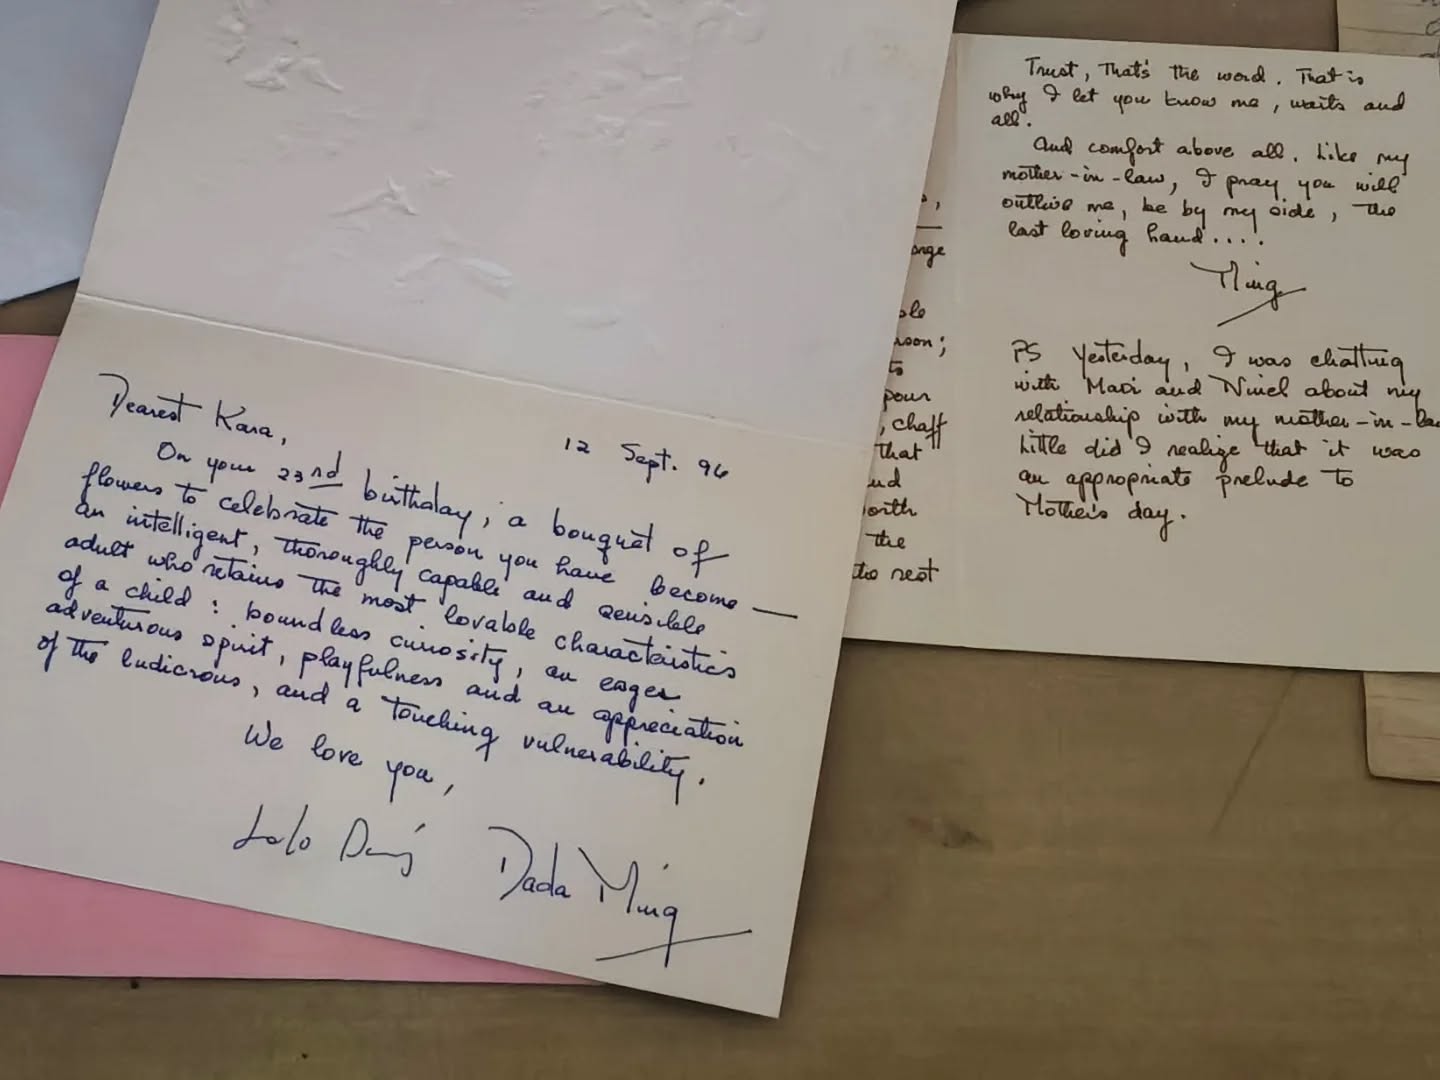 Dearest Kara,
12 Sept. 96
On your 23rd birthday, a bouquet of
flowers to celebrate the person you have become —
an intelligent, thoroughly capable and sensible
adult who retains the most lovable characteristics
of a child : boundless curiosity, an eager
adventurous spirit, playfulness and an appreciation
of the ludicrous, and a touching vulnerability.
We love you,
Lolo Dads Dada Ming
Trust, that's the word. That is
why I let you know me, warts and
all.
And comfort above all. Like my
mother-in-law, I pray you will
outlive me, be by my side, the
last loving hand....
Ming
PS Yesterday, I was chatting
with Madi and Ninel about my
relationship with my mother-in-law
Little did I realize that it was
an appropriate prelude to
Mother's day.
pour
, chaff
that
the
rest